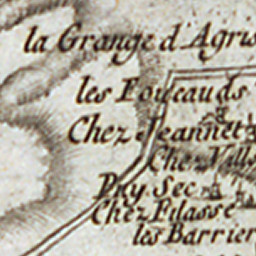 la Grange d'Agris
les Foucauds
Chez Jeannet
Chez Vills
Puy Sec
Chez Filasse
les Barrier